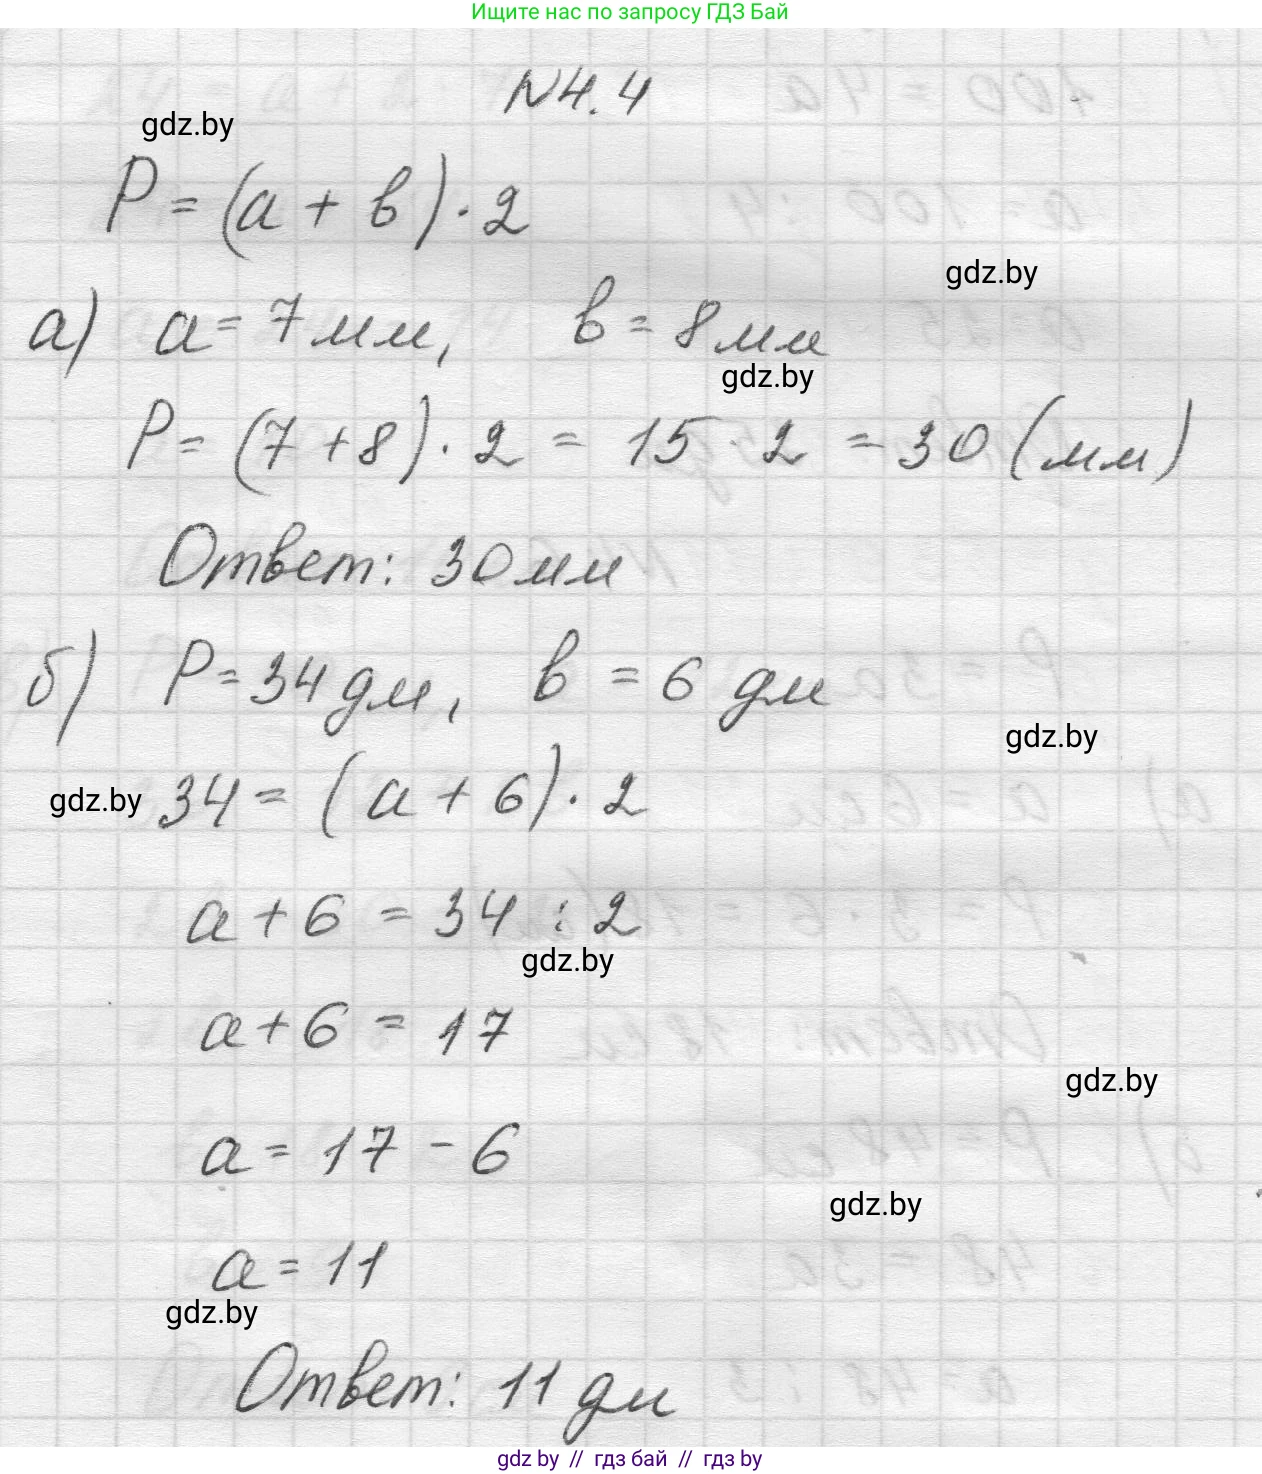 Ищите нас по запросу ГДЗ Бай
№4.4
gdz.by
P = (a + b) · 2
gdz.by
а) a = 7 мм, b = 8 мм
gdz.by
P = (7 + 8) · 2 = 15 · 2 = 30 (мм)
Ответ: 30 мм
б) P = 34 дм, b = 6 дм
gdz.by
gdz.by 34 = (a + 6) · 2
a + 6 = 34 : 2
gdz.by
a + 6 = 17
gdz.by
a = 17 - 6
gdz.by
a = 11
gdz.by
Ответ: 11 дм
gdz by // гдз бай // гдз by